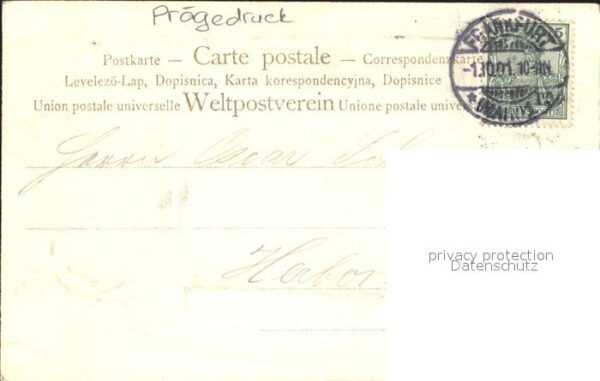 Prägedruck
Postkarte — Carte postale — Correspondenzkarte
Levelező-Lap, Dopisnica, Karta korespondencyjna, Dopisnice
Union postale universelle Weltpostverein Unione postale univers
FRANKFURT
-1.10.01. 10-11N.
(MAIN)
5
Herrn Oscar
privacy protection
Datenschutz